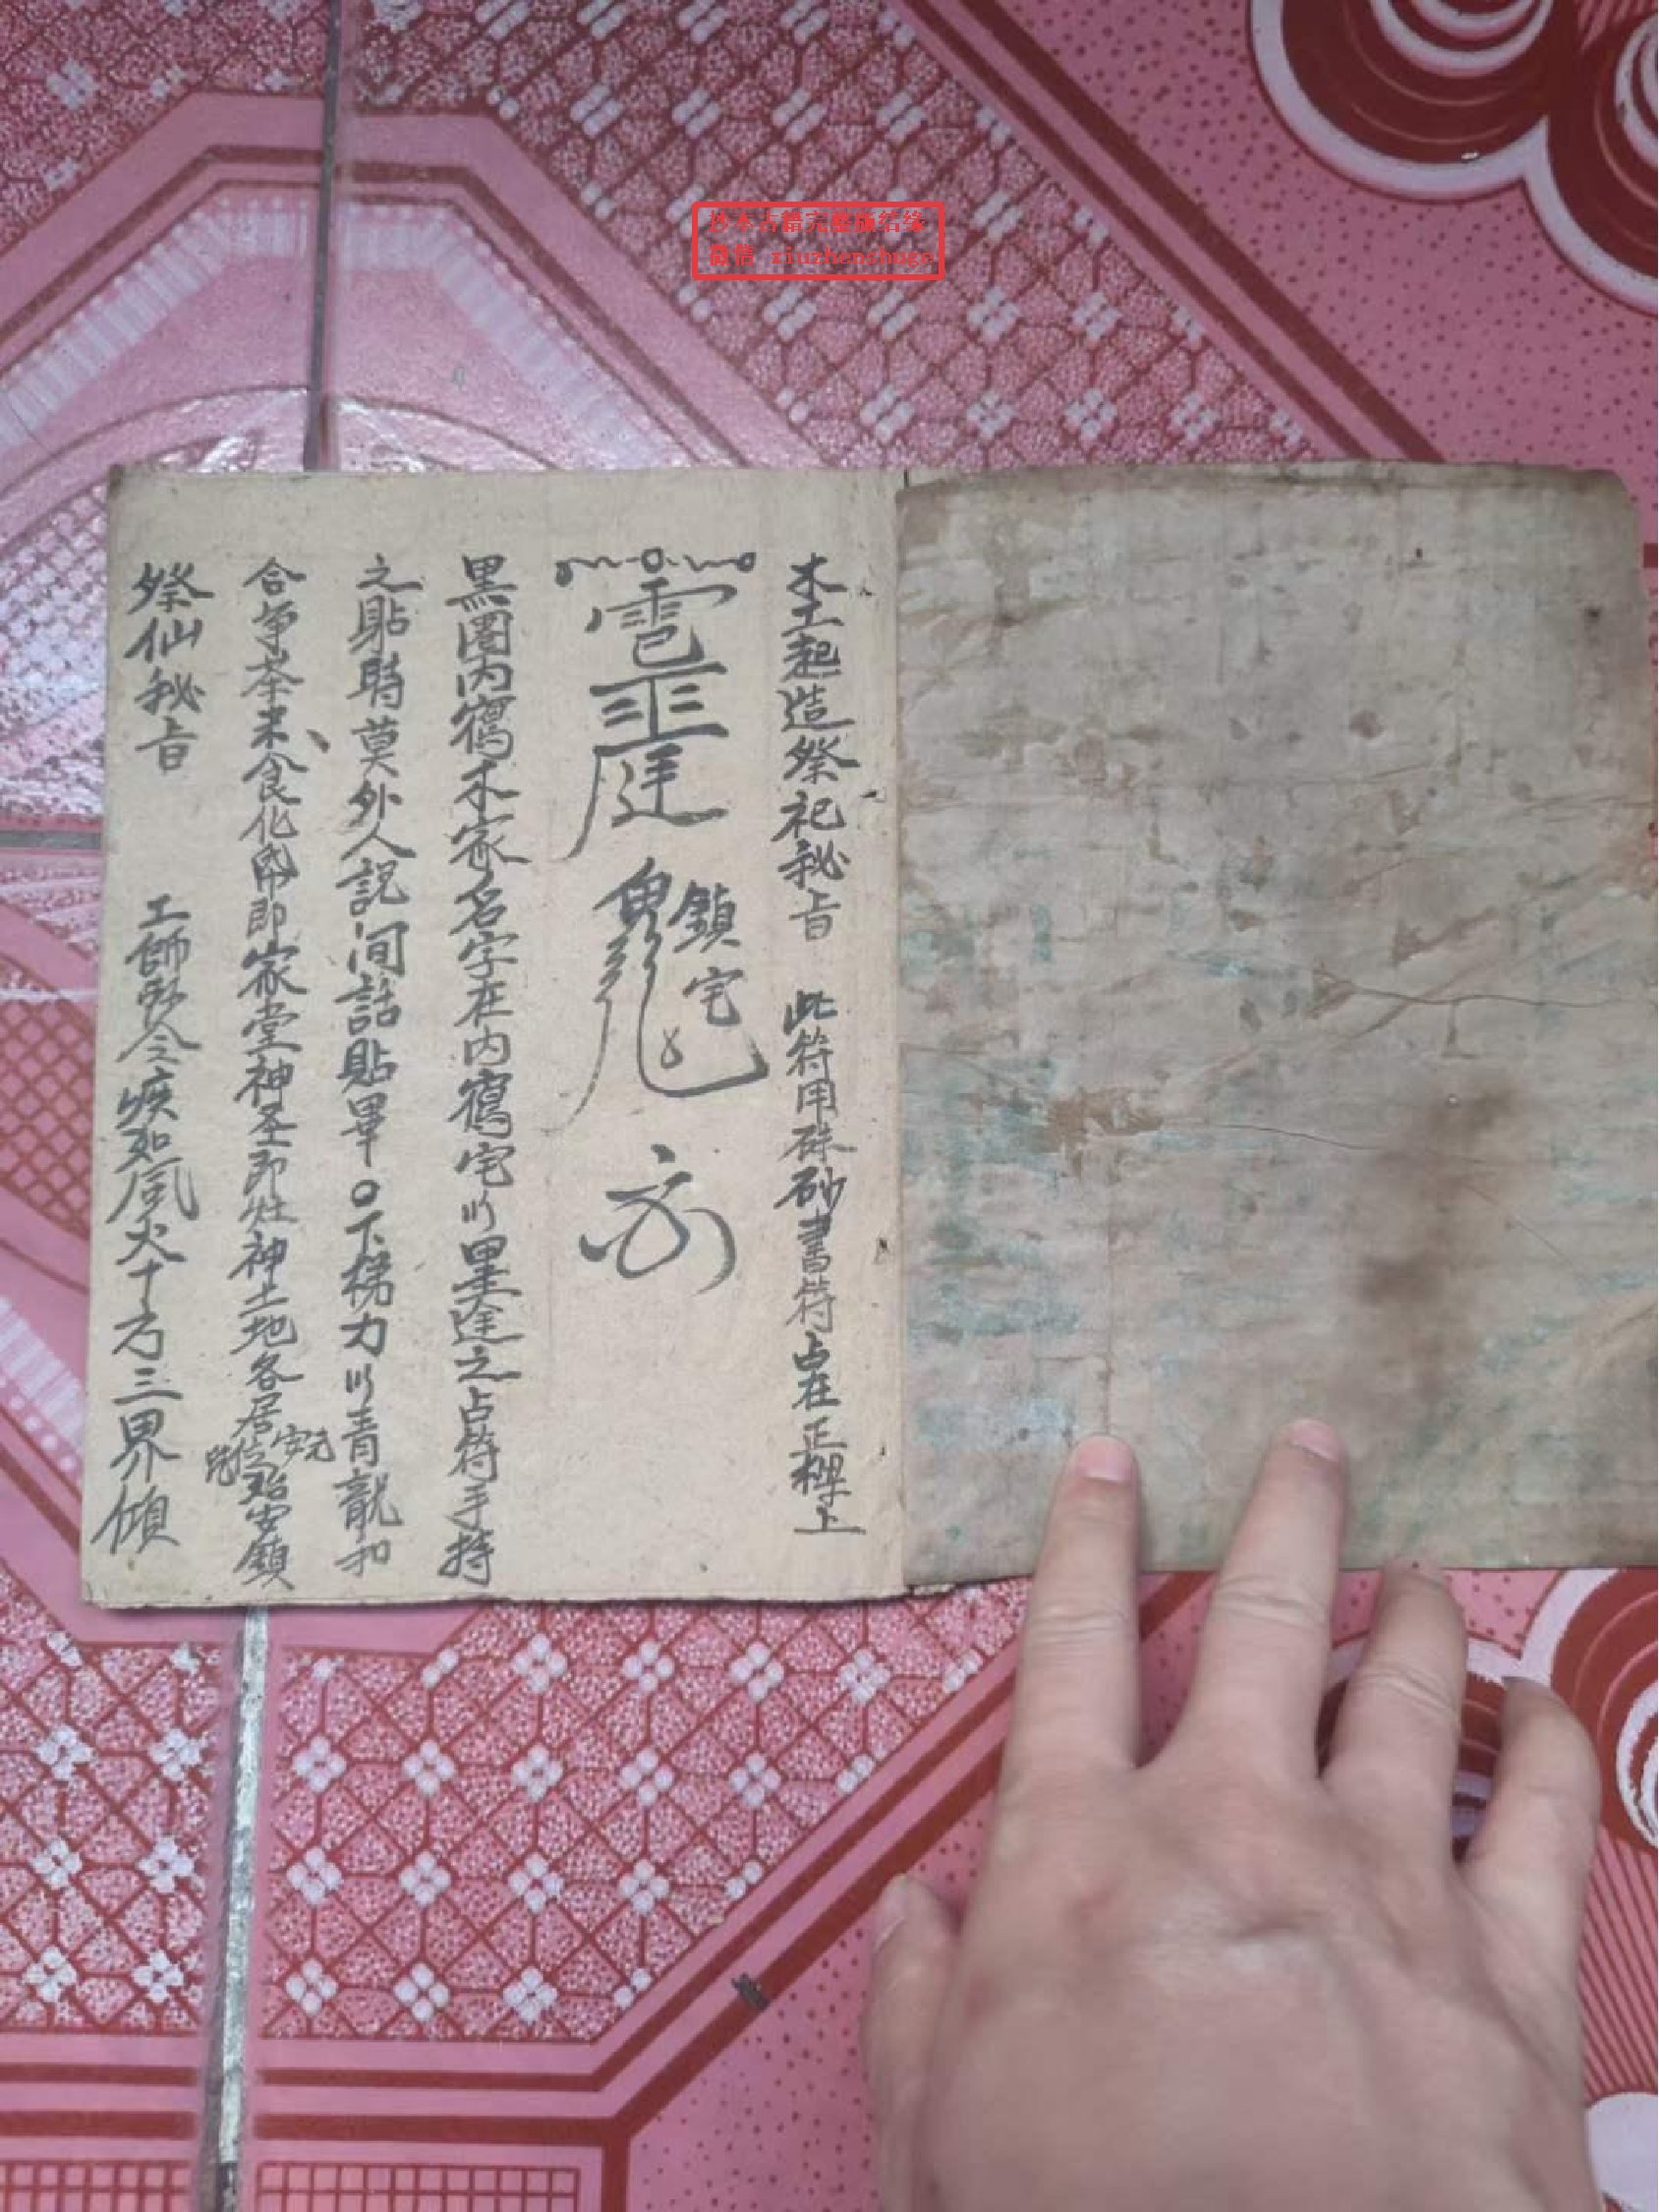 抄本古籍完整版结缘
微信 xiuzhenshuge
木土起造祭祀秘旨 此符用硃砂書符占在正樑上
鎮宅
黑圈内寫木家名字在内寫宅以墨途之占符手持
之貼時莫外人説间話貼畢〇下梯力以青龍和
合爭茶未食化即家堂神圣即灶神土地各居位安鎮
祭仙秘旨 工師敕令疾如風火十方三界傾